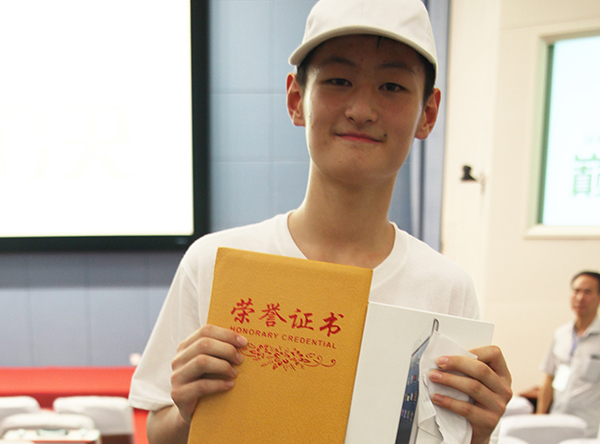 荣誉证书
HONORARY CREDENTIAL